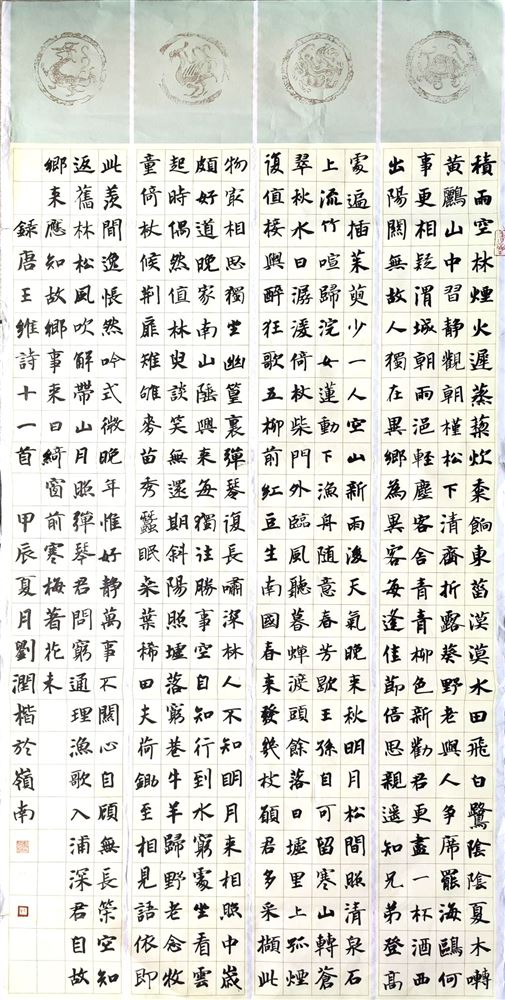 積雨空林煙火遲蒸藜炊黍餉東菑漠漠水田飛白鷺陰陰夏木囀
黃鸝山中習靜觀朝槿松下清齋折露葵野老與人爭席罷海鷗何
事更相疑渭城朝雨浥輕塵客舍青青柳色新勸君更盡一杯酒西
出陽關無故人獨在異鄉為異客每逢佳節倍思親遙知兄弟登高
處遍插茱萸少一人空山新雨後天氣晚來秋明月松間照清泉石
上流竹喧歸浣女蓮動下漁舟隨意春芳歇王孫自可留寒山轉蒼
翠秋水日潺湲倚杖柴門外臨風聽暮蟬渡頭餘落日墟里上孤煙
復值接輿醉狂歌五柳前紅豆生南國春來發幾枝願君多采擷此
物最相思獨坐幽篁裏彈琴復長嘯深林人不知明月來相照中歲
頗好道晚家南山陲興來每獨往勝事空自知行到水窮處坐看雲
起時偶然值林叟談笑無還期斜陽照墟落窮巷牛羊歸野老念牧
童倚杖候荊扉雉雊麥苗秀蠶眠桑葉稀田夫荷鋤至相見語依即
此羨間逸悵然吟式微晚年惟好靜萬事不關心自顧無長策空知
返舊林松風吹解帶山月照彈琴君問窮通理漁歌入浦深君自故
鄉來應知故鄉事來日綺窗前寒梅著花未
錄唐王維詩十一首 甲辰夏月劉潤楷於嶺南